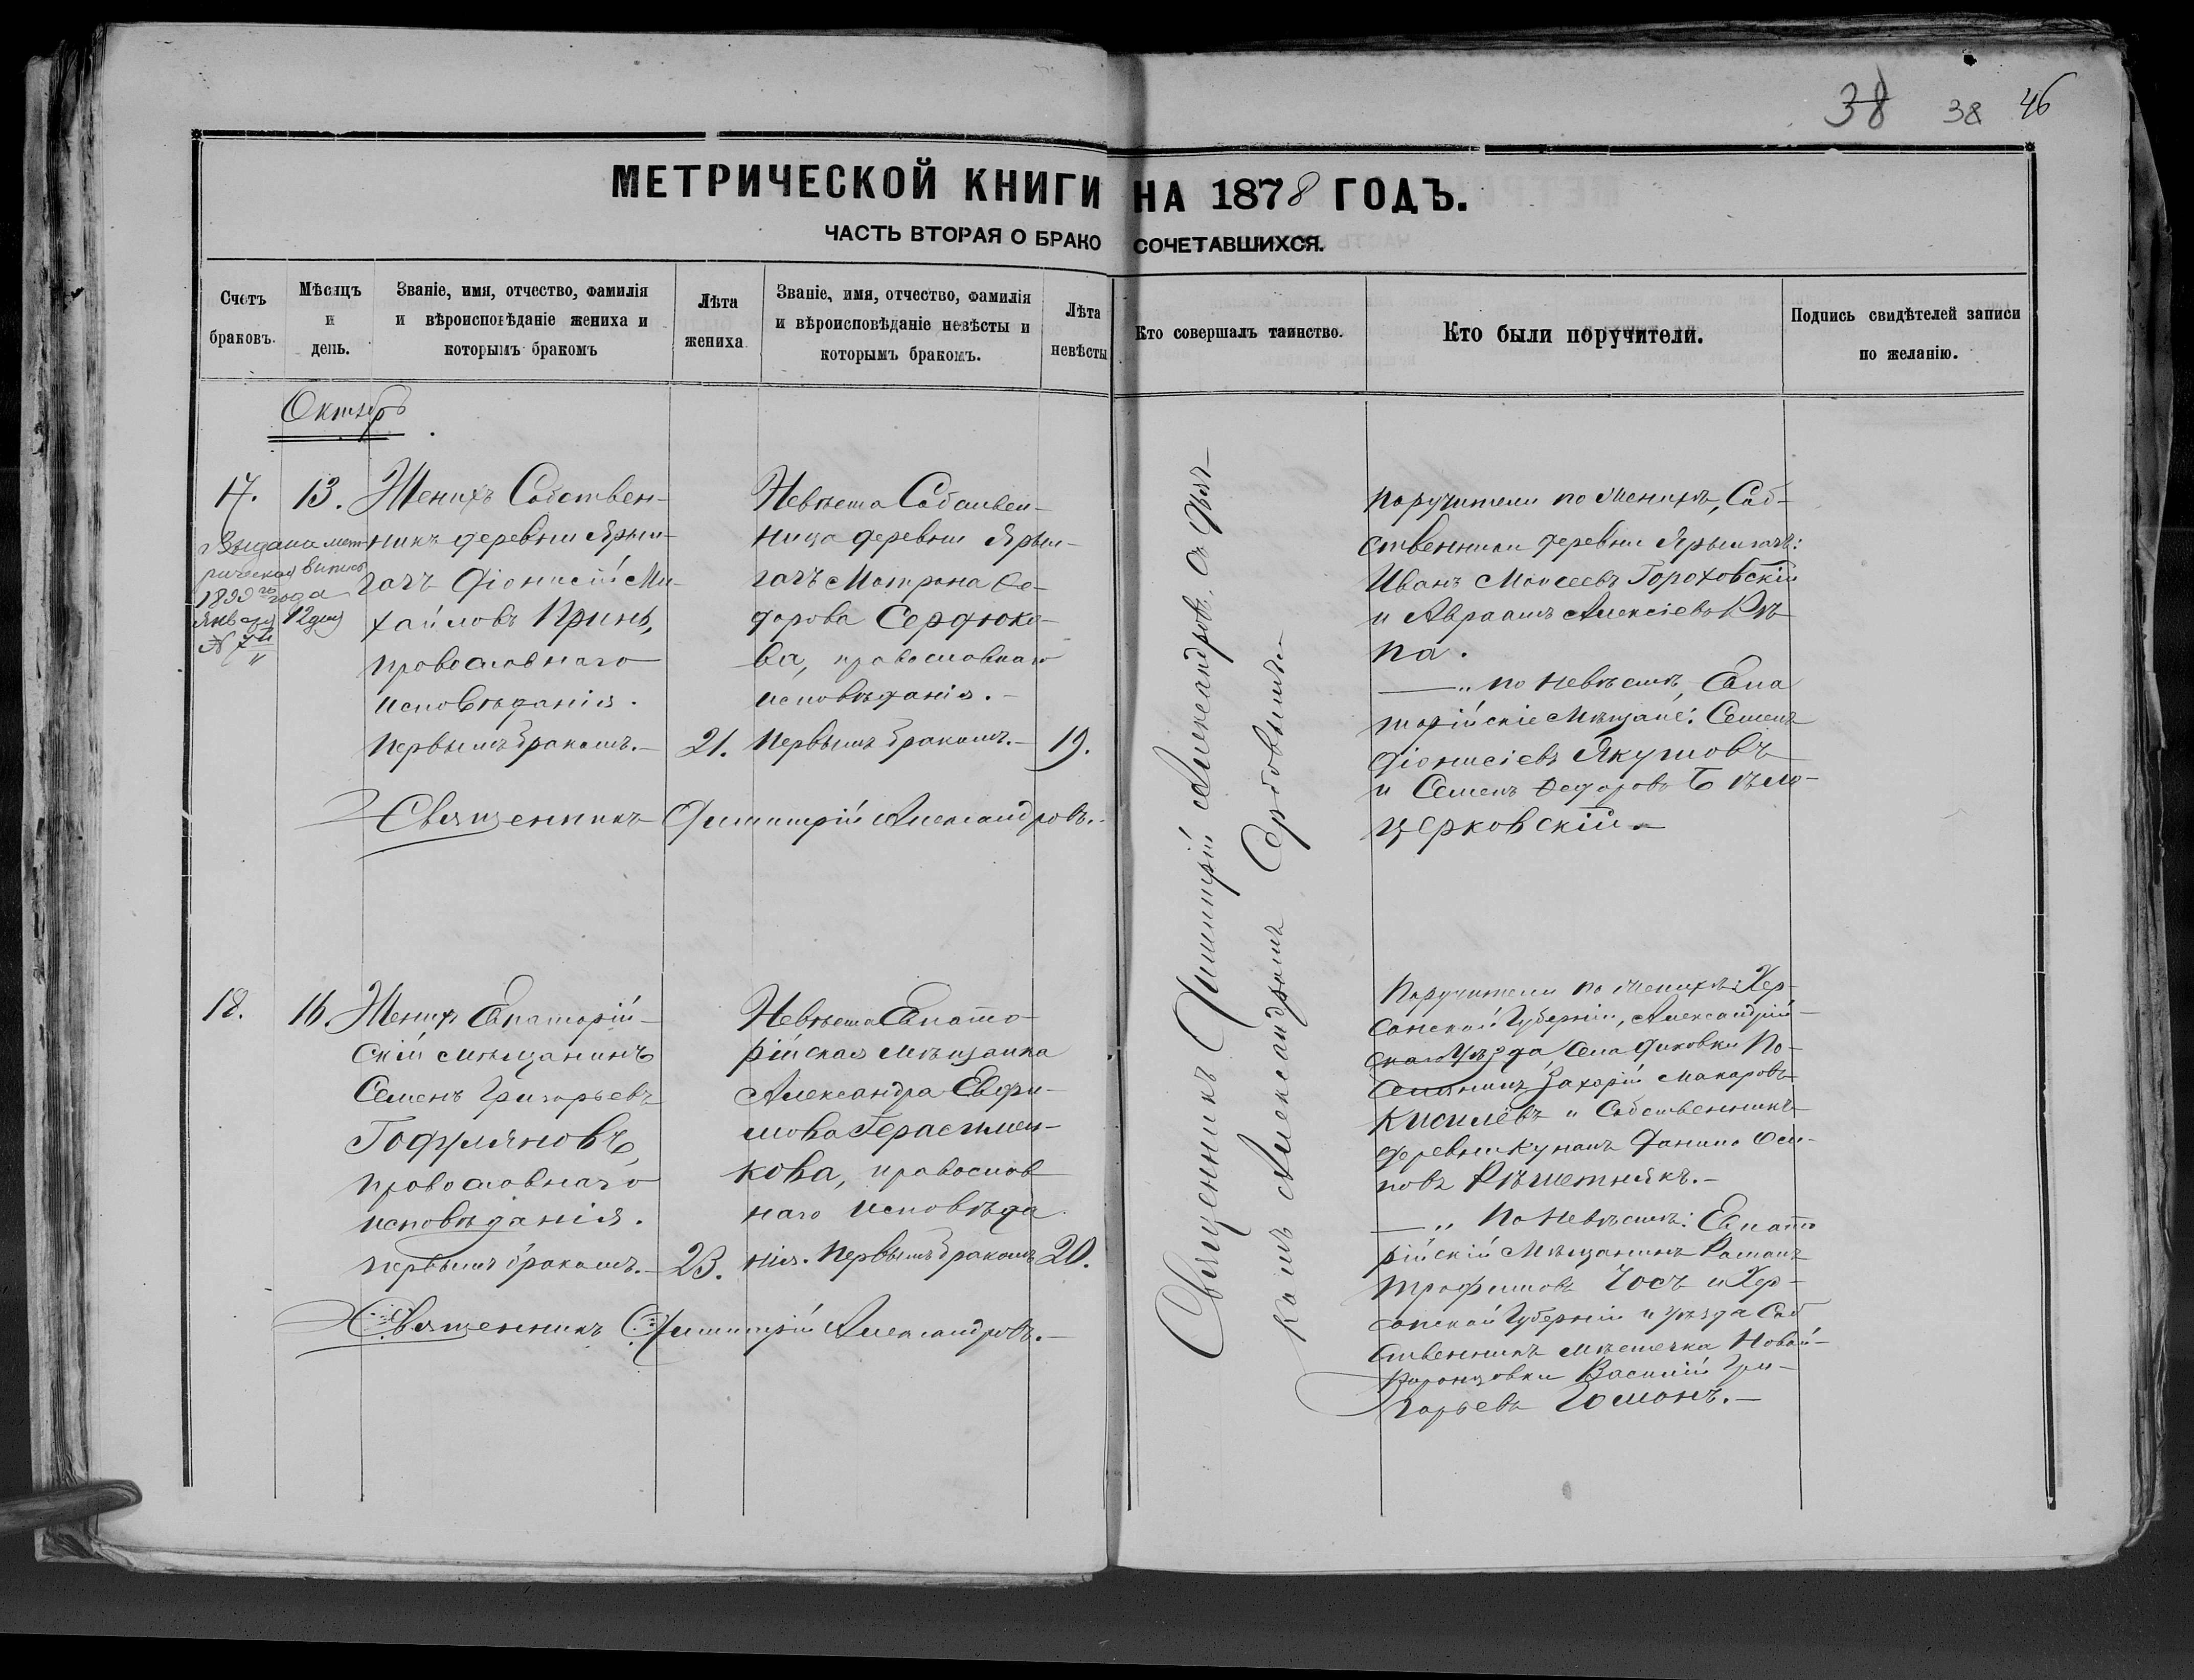 38 38 46
МЕТРИЧЕСКОЙ КНИГИ НА 1878 ГОДЪ.
ЧАСТЬ ВТОРАЯ О БРАКОСОЧЕТАВШИХСЯ.
Счетъ браковъ.
Мѣсяцъ и день.
Званіе, имя, отчество, фамилія и вѣроисповѣданіе жениха и которымъ бракомъ
Лѣта жениха
Званіе, имя, отчество, фамилія и вѣроисповѣданіе невѣсты и которымъ бракомъ.
Лѣта невѣсты
Кто совершалъ таинство.
Кто были поручители.
Подпись свидѣтелей записи по желанію.
Октябрь
17.
13.
Выдана мет-
рическая выпись
1899 го года
Января 12 дня
№ 7й
Женихъ Собствен-
никъ деревни Ярыл-
гачъ Діонисій Ми-
хайловъ Принь,
православнаго
исповѣданія.
первымъ бракомъ.-
21.
Невѣста Собствен-
ница деревни Ярыл-
гачъ Матрона Ѳе-
дорова Сердюко-
ва, православнаго
исповѣданія.-
первымъ бракомъ.-
19.
Священникъ Димитрій Александровъ.-
Поручители по женихѣ, Соб-
ственники деревни Ярылгачъ:
Иванъ Моисеевъ Гороховскій
и Авраамъ Алексіевъ Рѣ-
па.
—" по невѣстѣ, Евпа
торійскіе Мѣщане: Семенъ
Діонисіевъ Якушовъ
и Семенъ Ѳедоровъ Бѣло-
церковскій.-
Священникъ Димитрій Александровъ, съ Дьяч-
комъ Александромъ Сербовымъ
18.
16.
Женихъ Евпаторій-
скій мѣщанинъ
Семенъ Григорьевъ
Гофуляновъ,
православнаго
исповѣданія.
первымъ бракомъ.-
23.
Невѣста Евпато-
рійская мѣщанка
Александра Евфи-
мова Герасимен-
кова, православ
наго исповѣда
нія. первымъ бракомъ
20.
Священникъ Димитрій Александровъ.-
Поручители по женихѣ: Хер-
сонской Губерніи, Александрій-
скаго Уѣзда, Села Диковки По-
селянинъ Захарій Макаровъ
Кисилёвъ и Собственникъ
деревни Кунанъ Данило Оси-
повъ Рѣшетнякъ.-
—" По невѣстѣ: Евпато
рійскій Мѣщанинъ Романъ
Трофимовъ Чосъ и Хер-
сонской Губерніи и уѣзда Соб
ственникъ мѣстечка Новой-
Воронцовки Василій Гри-
горьевъ Гомонъ.-